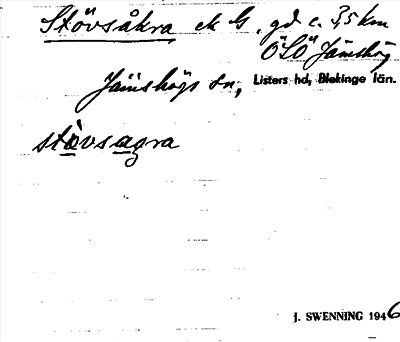 Stövsåkra ek G, gd c. 3,5 km
ÖSÖ Jämshög
Jämshögs sn, Listers hd, Blekinge län.
stòvsagra
J. SWENNING 1946